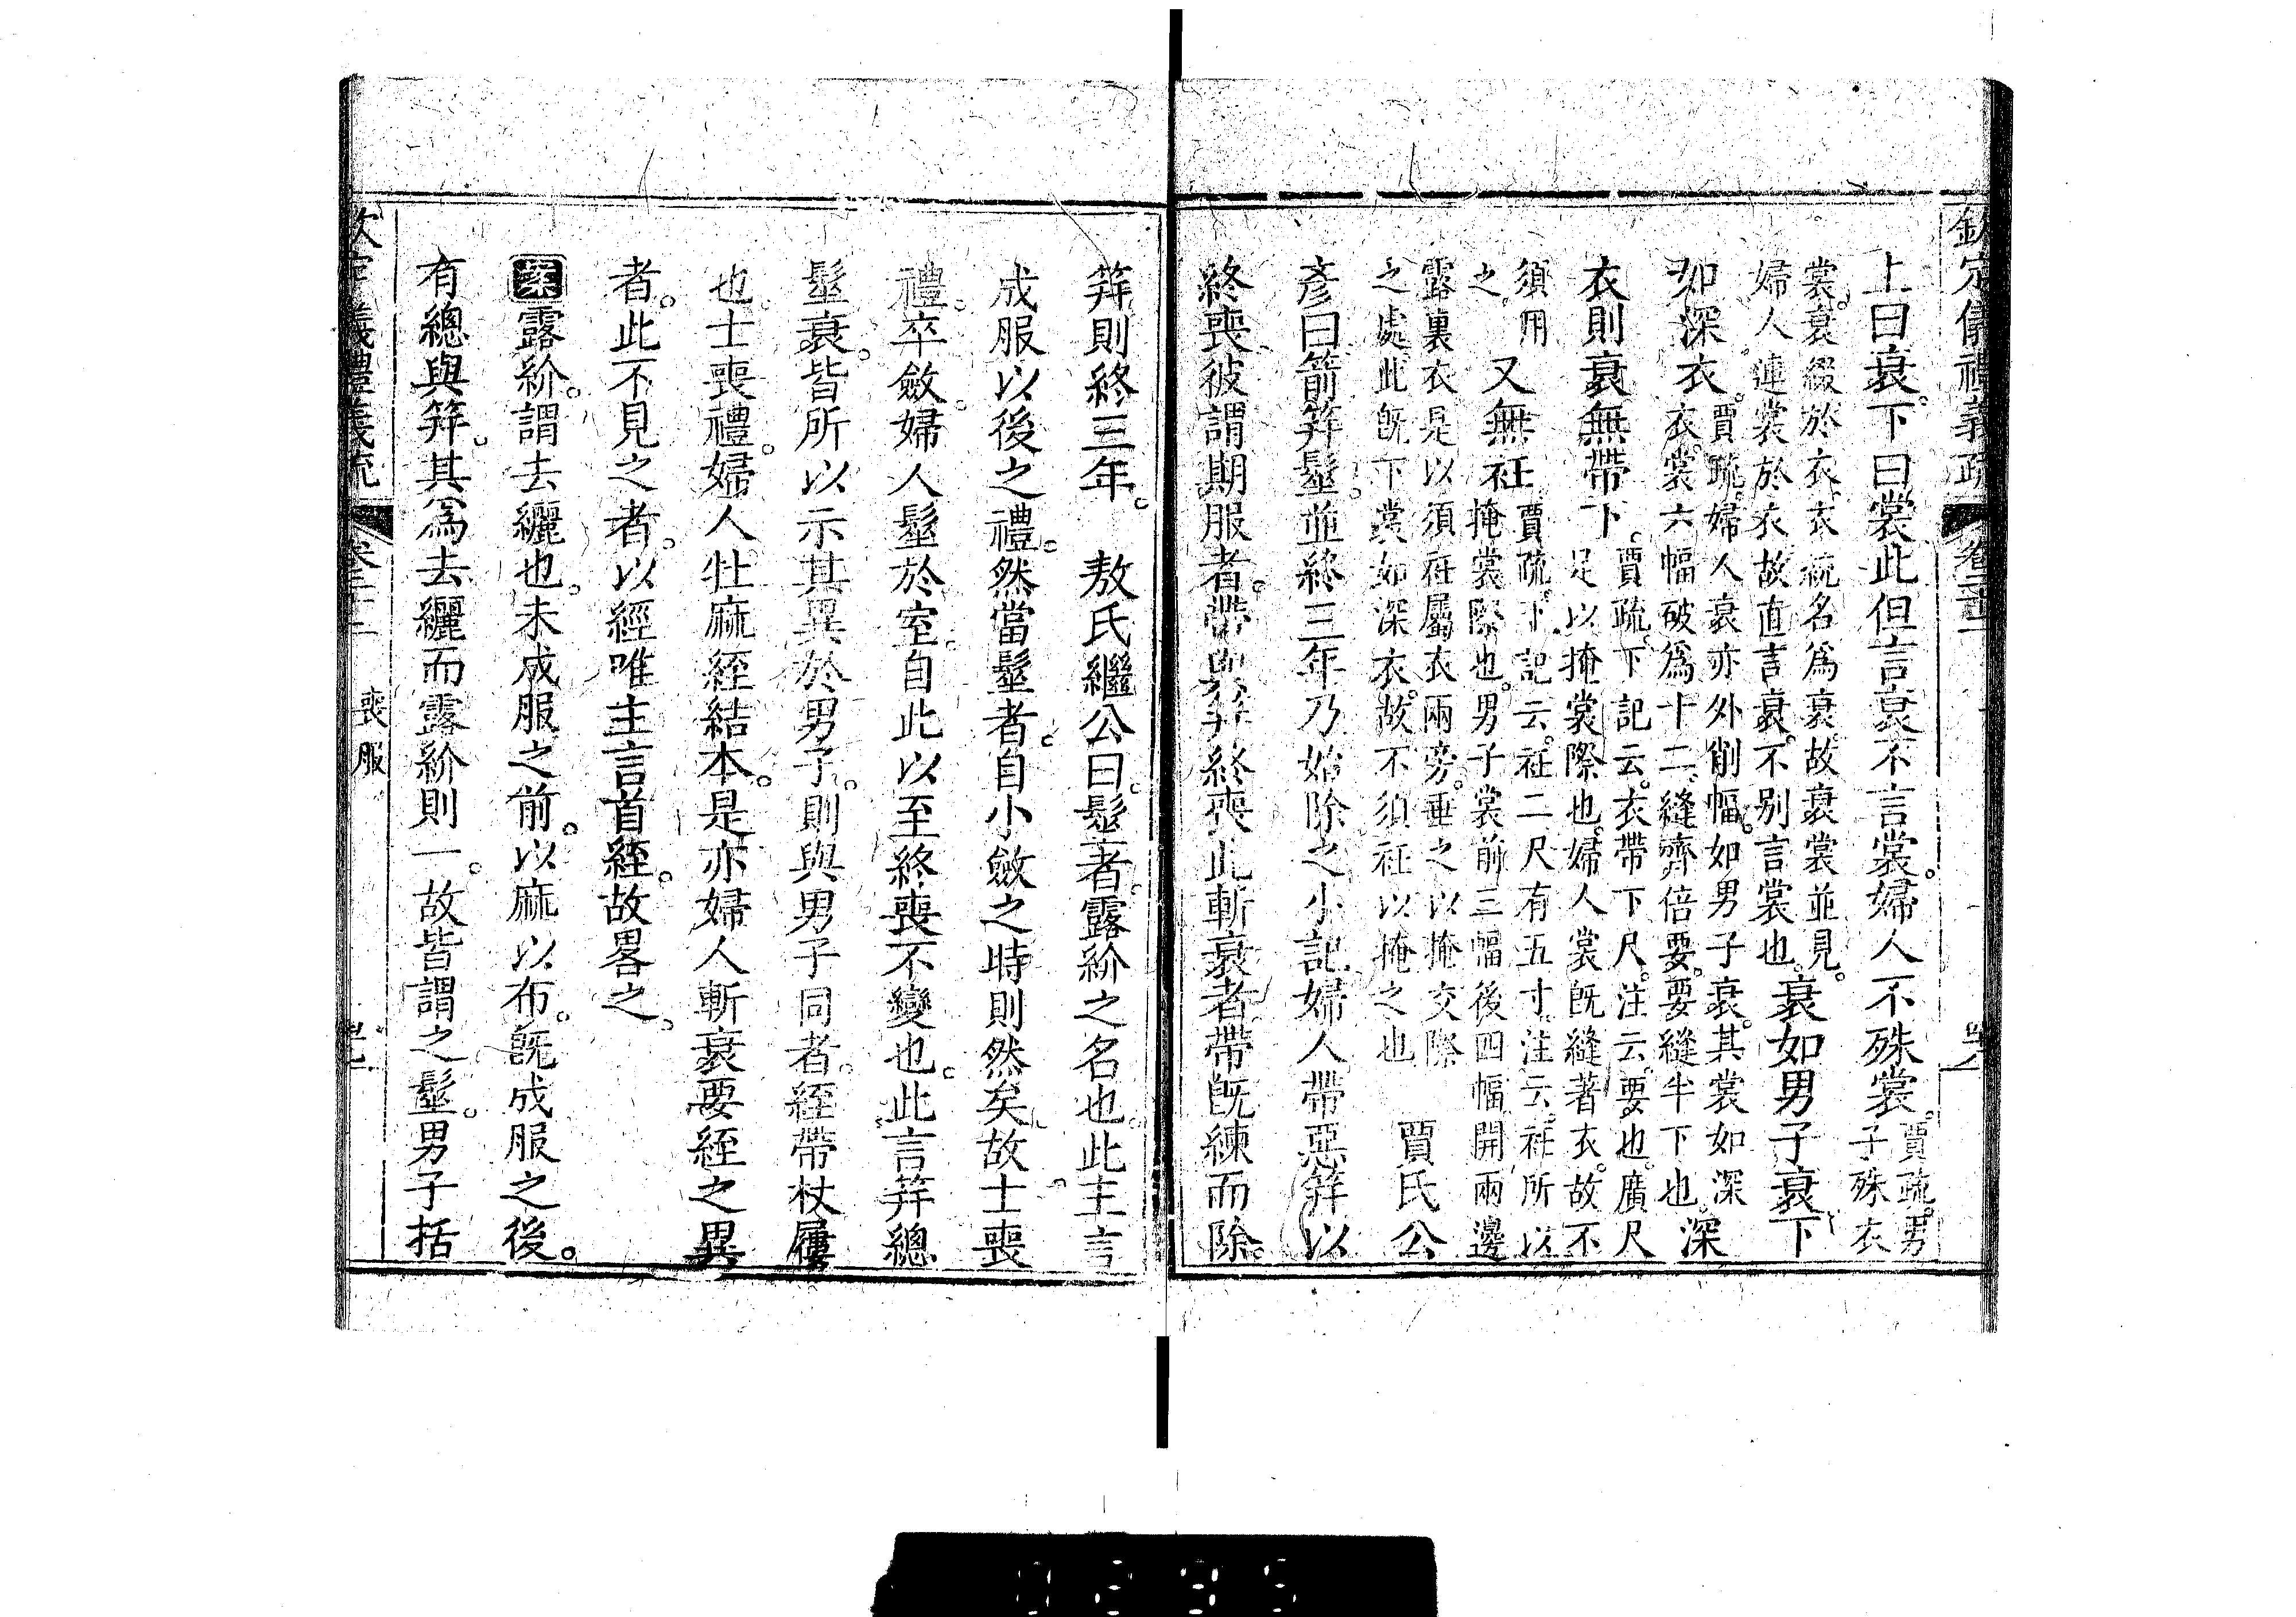 欽定儀禮義疏 卷二十二
上曰衰。下曰裳此但言衰不言裳。婦人不殊裳。賈疏。男子殊衣
裳。衰綴於衣。衣統名爲衰。故衰裳並見。婦人連裳於衣故直言衰。不別言裳也。衰如男子衰。下
如深衣。賈疏。婦人衰亦外削幅。如男子衰。其裳如深衣。裳六幅破爲十二。縫齊倍要。要縫半下也。深
衣則衰無帶下。賈疏。下記云。衣帶下尺。注云。要也。廣尺足以掩裳際也。婦人裳既縫著衣。故不
須用之。又無衽。賈疏。下記云。衽二尺有五寸。注云。衽所以掩裳際也。男子裳前三幅後四幅開兩邊
露裏衣是以須衽屬衣兩旁。垂之以掩交際之處此既下裳如深衣。故不須衽以掩之也 賈氏公
彥曰箭笄髽。並終三年乃始除之小記婦人帶惡笄以
終喪彼謂期服者。帶與笄終喪此斬衰者帶既練而除。
笄則終三年。 敖氏繼公曰。髽者。露紒之名也。此主言
成服以後之禮。然當髽者。自小斂之時則然矣。故士喪
禮。卒斂。婦人髽於室。自此以至終喪不變也。此言笄總
髽衰。皆所以示其異於男子。則與男子同者。絰帶杖屨
也。士喪禮。婦人牡麻絰結本。是亦婦人斬衰要絰之異
者。此不見之者。以經唯主言首絰。故畧之。
案露紒。謂去纚也。未成服之前。以麻以布。既成服之後。
有總與笄。其爲去纚而露紒則一。故皆謂之髽。男子括
欽定儀禮義疏 卷二十二 喪服